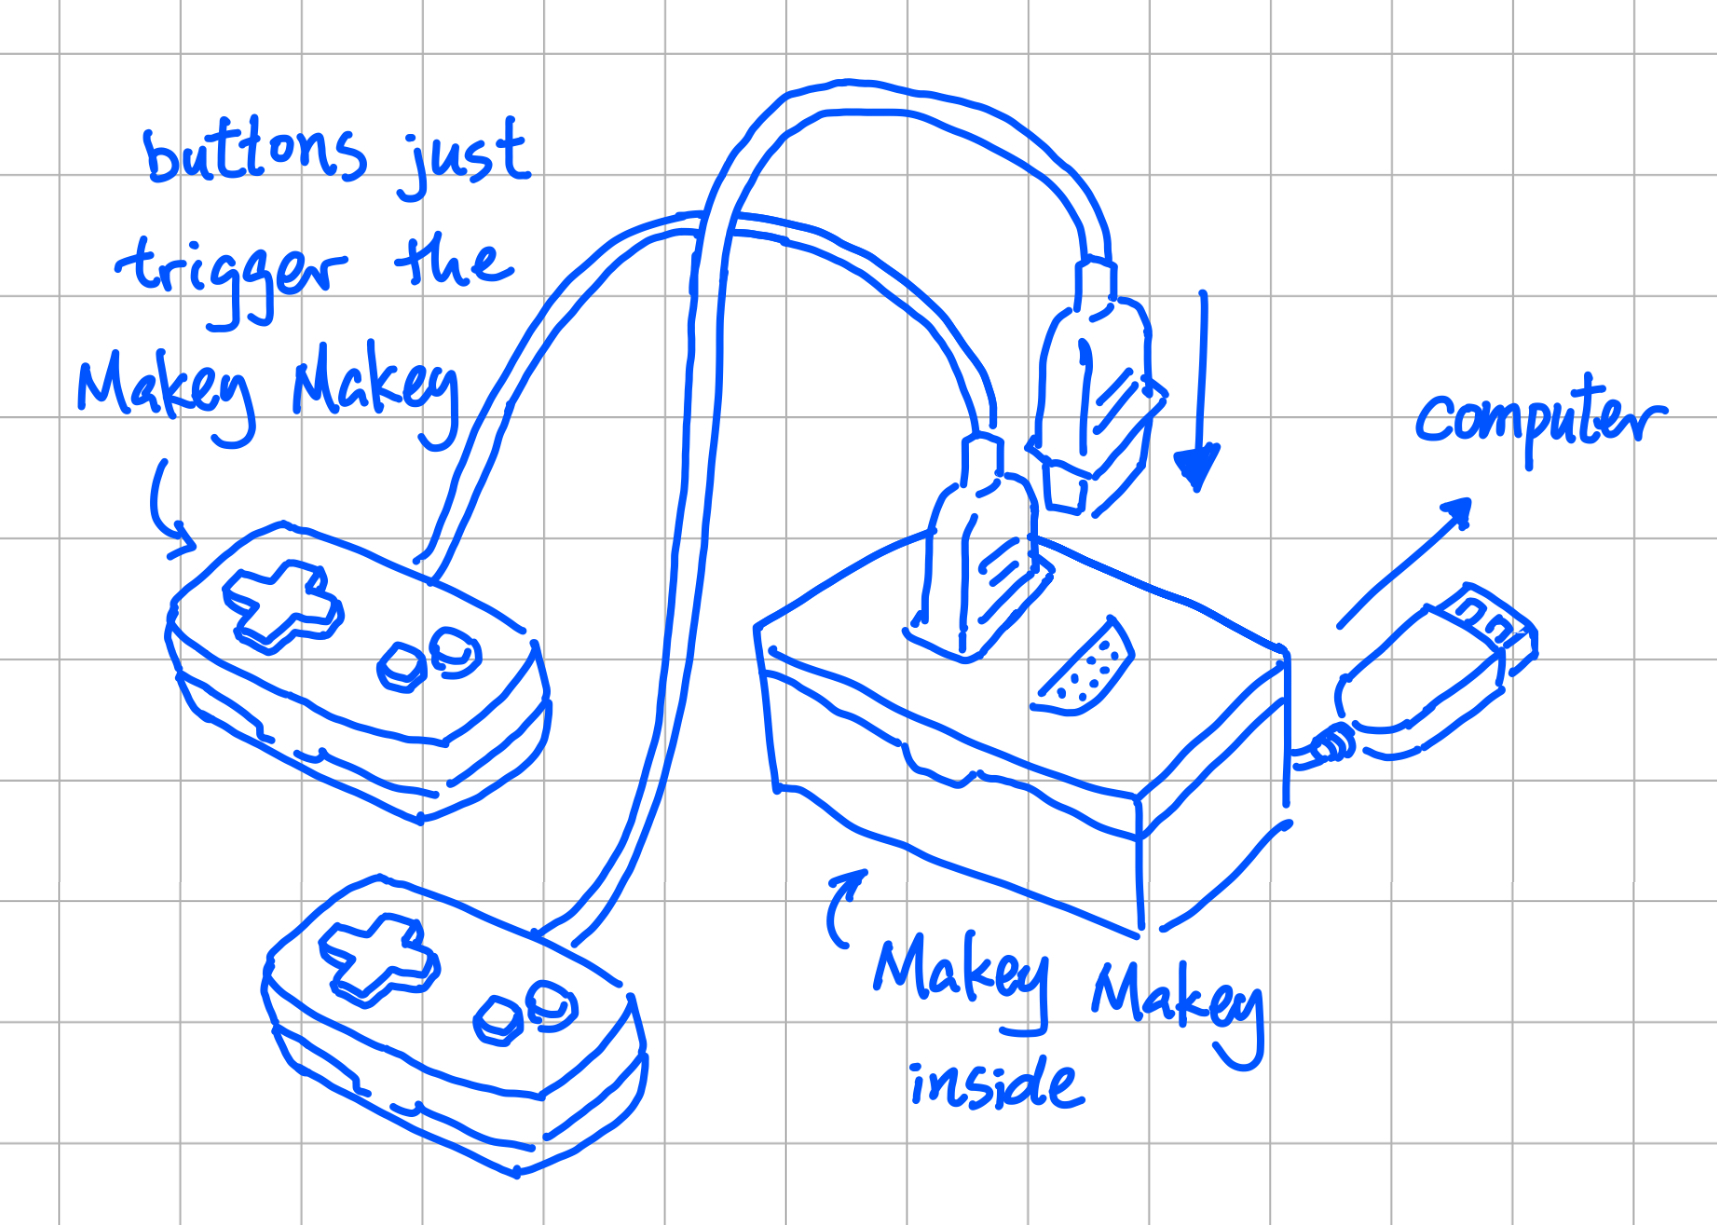 buttons just
trigger the
Makey Makey
computer
Makey Makey
inside